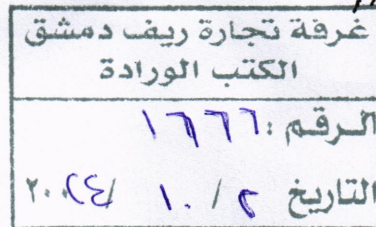 غرفة تجارة ريف دمشق
الكتب الورادة
الرقم: ١٦٦٦
التاريخ ٢ / ١٠ / ٢٠٢٤